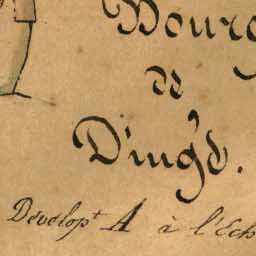 Bourg
de
Dingé.
Developt A à l'Ech